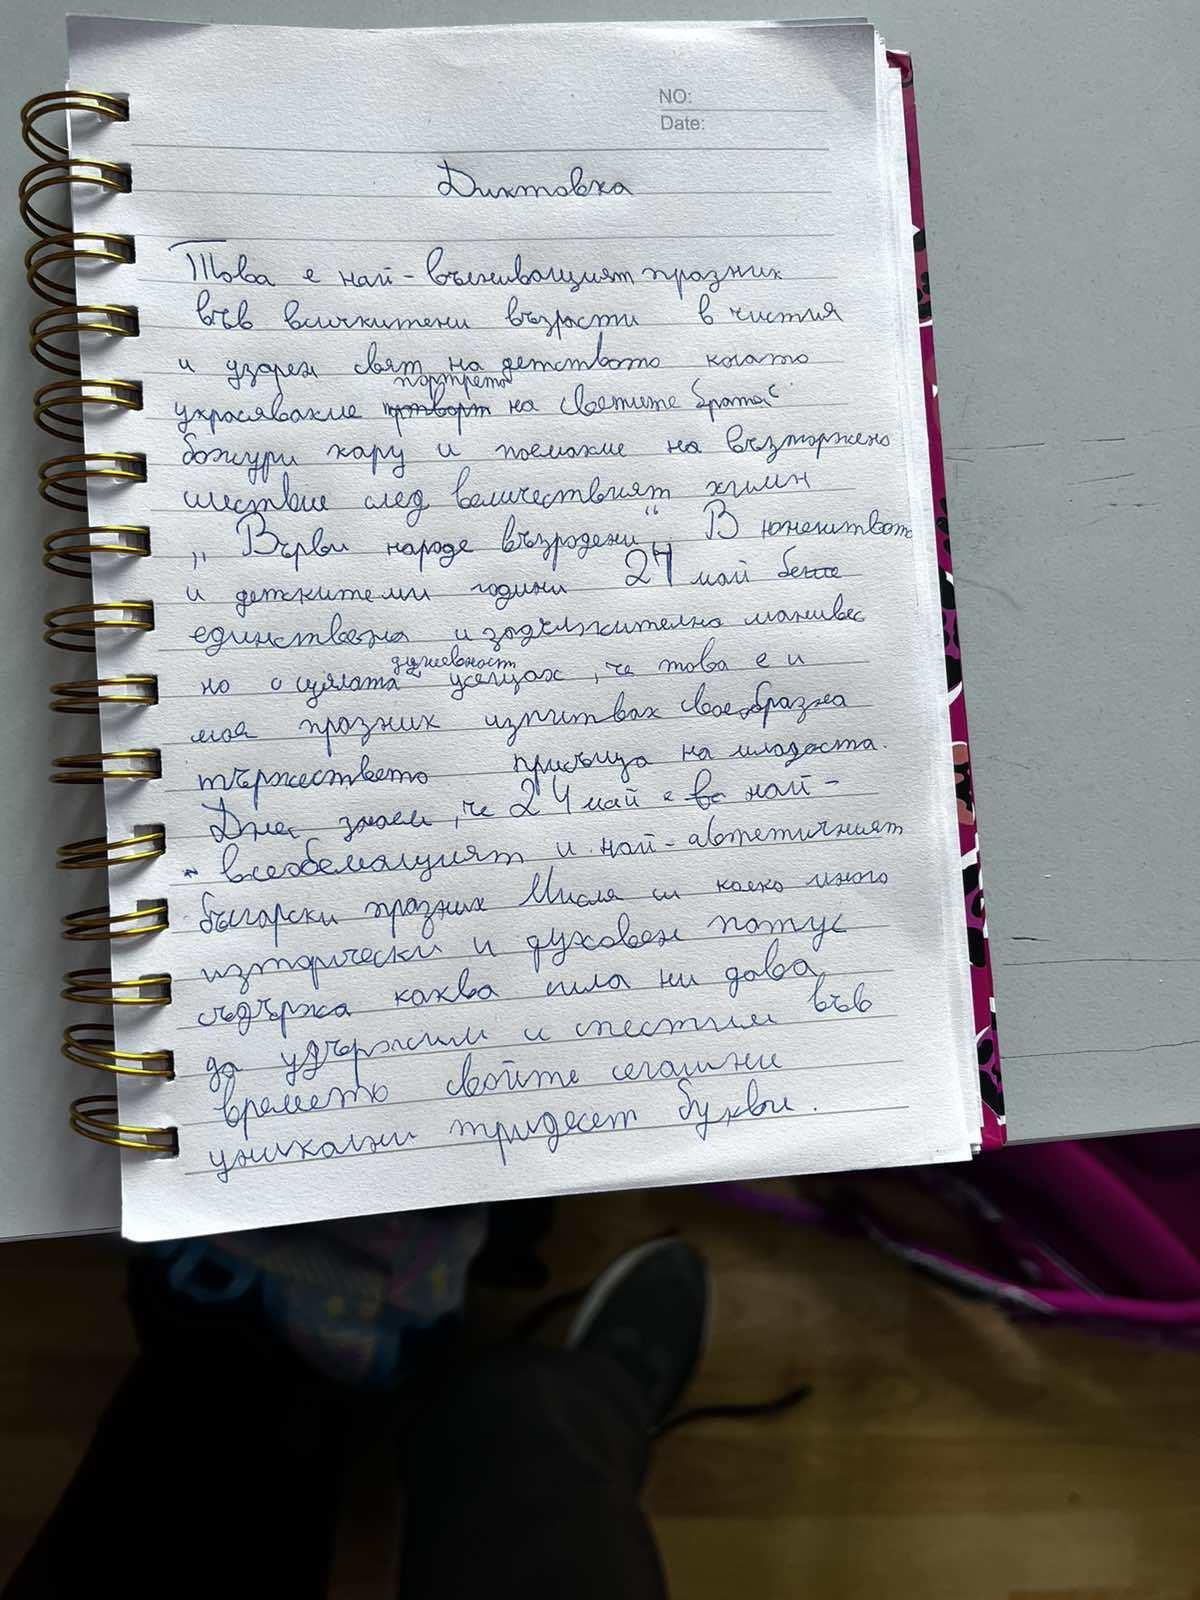 NO:
Date:
Диктовка
Това е най-вълнуващият празник
във всичкитени възрасти в чистия
и узарен свят на детството когато
украсявахме портрета на светите братяс
божури кару и поемахме на възторжено
шествие след величествият химн
„Върви народе възродени“ В юношитвото
и деткитеми години 24 май беше
единствена и задължително манивес
но с цялата душевност усещах, че това е и
моя празник изпитвах своеобразна
тържеството присъща на младоста.
Днес знаем, че 24 май е во най-
всеобемащият и най-автетичният
български празник Мисля си колко много
изторически и духовен потус
съдържа каква сила ни дава,
да удържим и спестим във
времето свойте сегашни
уникални тридесет букви.